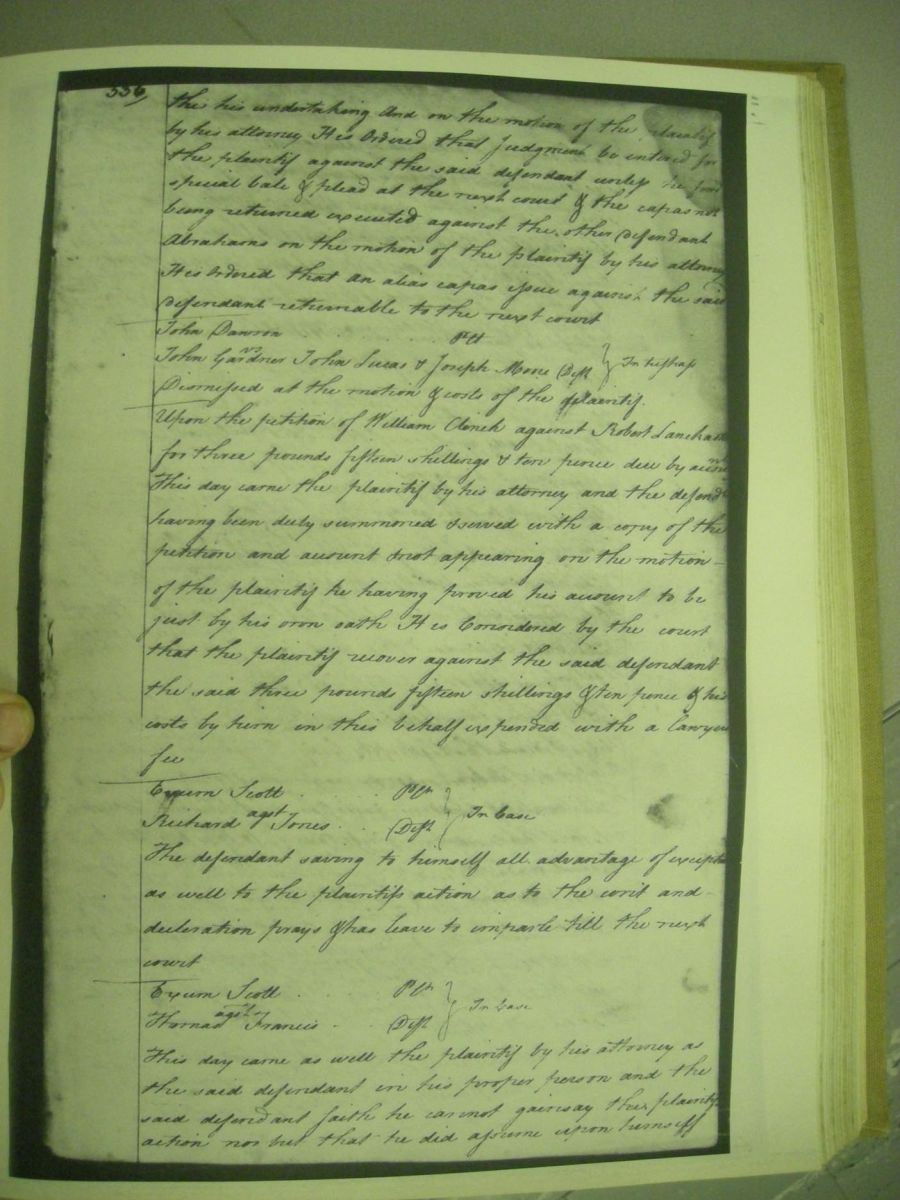 556/
the his undertaking And on the motion of the plaintif
by his attorney It is Ordered that Judgment be entered for
the plaintif against the said defendant unless he
special bale & plead at the next court & the capas not
being returned executed against the other Defendant
Abrahams on the motion of the plaintif by his attorney
It is Ordered that an alias capas issue against the said
Defendant returnable to the next court
John Dawson Plt
vs
John Gardner John Lucas & Joseph Moore Deft } In trespass
Dismissed at the motion & costs of the plaintif.
Upon the petition of William Clinch against Robert Lanchaster
for three pounds fifteen shillings & ten pence due by accont
This day came the plaintif by his attorney and the defendt
having been duly summoned & served with a copy of the
petition and account & not appearing on the motion
of the plaintif he having proved his account to be
just by his own oath It is Considered by the court
that the plaintif recover against the said defendant
the said three pounds fifteen shillings & ten pence & his
costs by him in this behalf expended with a Lawyers
fee
Exum Scott Plt
agst } In Case
Richard Jones Deft
The defendant saving to himself all advantage of excepti
as well to the plaintifs action as to the writ and
decleration prays & has leave to imparle till the next
court
Exum Scott Plt
agst } In Case
Thomas Francis Deft
This day came as well the plaintif by his attorney as
the said defendant in his proper person and the
said defendant saith he cannot gainsay the plaintifs
action nor but that he did assume upon himself